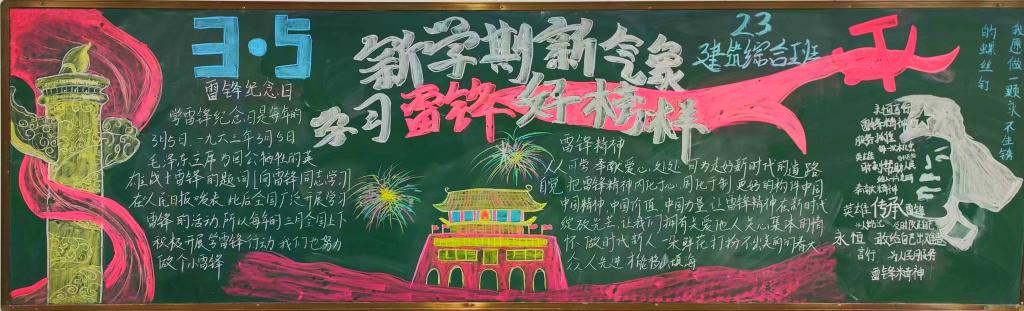 3·5
雷锋纪念日
学雷锋纪念日是每年的
3月5日一九六三年3月5日
毛泽东主席为因公牺牲的英
雄战士雷锋的题词"向雷锋同志学习"
在人民日报发表此后全国广泛开展学习
雷锋的活动,所以每年的三月全国上下
积极开展学雷锋行动我们也努力
做个小雷锋
新学期新气象
学习雷锋好榜样
23
建筑综合班
雷锋精神
人可学奉献爱心处处可为走好新时代的道路
自觉把雷锋精神内化于心
中国精神中国价值中国力量让雷锋精神在新时代
绽放光芒让我们拥有关爱他人关心集体的情
怀做时代新人一朵鲜花打扮不出美丽的春天
众人先进才能
我愿做一颗永不生锈
的螺丝钉
雷锋精神
传承
永恒
言行 为人民服务
雷锋精神